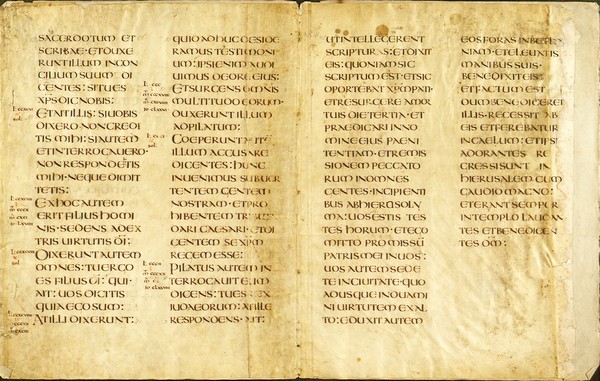 SACERDOTUM ET
SCRIBAE·ET DUXE
RUNT ILLUM IN CON
CILIUM SUUM DI
CENTES: SI TU ES
XPS DIC NOBIS:
ET AIT ILLIS: SI UOBIS
DIXERO NON CREDI
TIS MIHI: SI AUTEM
ET INTERROGAUERO·
NON RESPONDETIS
MIHI·NEQUE DIMIT
TETIS:
EX HOC AUTEM
ERIT FILIUS HOMI
NIS·SEDENS A DEX
TRIS UIRTUTIS DI:
DIXERUNT AUTEM
OMNES: TU ERGO
ES FILIUS DI: QUI·
AIT: UOS DICITIS
QUIA EGO SUM:
AT ILLI DIXERUNT:
QUID ADHUC DESIDE
RAMUS TESTIMONI
UM: IPSI ENIM AUDI
UIMUS DE ORE EIUS:
ET SURGENS OMNIS
MULTITUDO EORUM·
DUXERUNT ILLUM
AD PILATUM:
COEPERUNT
ILLUM ACCUSARE
DICENTES: HUNC
INUENIMUS SUBUER
TENTEM GENTEM
NOSTRAM·ET PRO
HIBENTEM
DARI CAESARI·ET DI
CENTEM SE XPM
REGEM ESSE:
PILATUS AUTEM IN
TERROGAUIT EUM
DICENS: TU ES REX
IUDAEORUM: AT ILLE
RESPONDENS·AIT:
UT INTELLEGERENT
SCRIPTURAS: ET DIXIT
EIS: QUONIAM SIC
SCRIPTUM EST·ET SIC
OPORTEBAT XPM PATI·
ET RESURGERE A MOR
TUIS DIE TERTIA·ET
PRAEDICARI IN NO
MINE EIUS PAENI
TENTIAM·ET REMIS
SIONEM PECCATO
RUM IN OMNES
GENTES·INCIPIENTI
BUS AB HIEROSOLY
MA: UOS ESTIS TES
TES HORUM·ET EGO
MITTO PROMISSUM
PATRIS MEI IN UOS:
UOS AUTEM SEDE
TE IN CIUITATE·QUO
ADUSQUE INDUAMI
NI UIRTUTEM EX AL
TO: EDUXIT AUTEM
EOS FORAS IN BETHA
NIAM·ET ELEUATIS
MANIBUS SUIS·
BENEDIXIT EIS:
ET FACTUM EST
DUM BENEDICERET
ILLIS·RECESSIT AB
EIS ET FEREBATUR
IN CAELUM: ET IPSI
ADORANTES RE
GRESSI SUNT IN
HIERUSALEM CUM
GAUDIO MAGNO:
ET ERANT SEMPER
IN TEMPLO LAUDAN
TES ET BENEDICEN
TES DM: